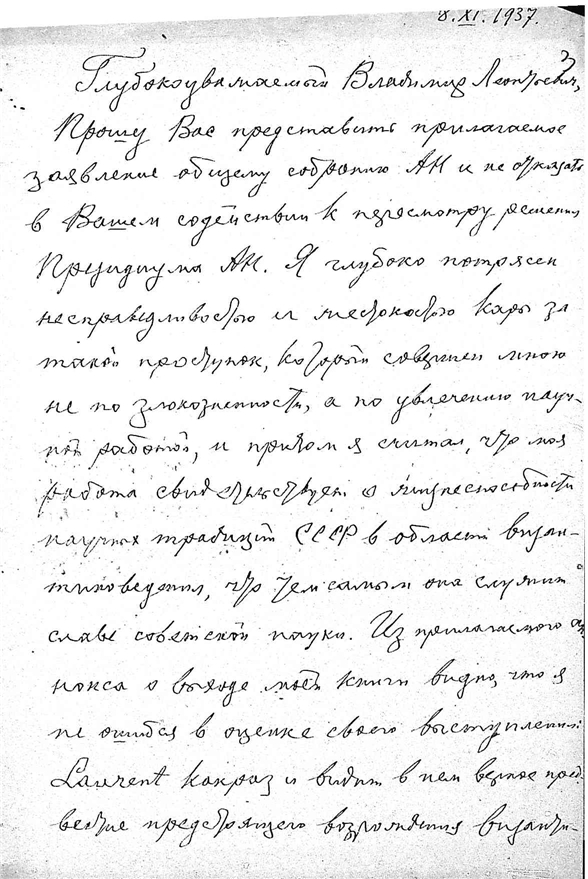 8.XI.1937.
Глубокоуважаемый Владимир Леонтьевич,
Прошу Вас представить прилагаемое
заявление общему собранию АН и не отказать
в Вашем содействии к пересмотру решения
Президиума АН. Я глубоко потрясен
несправедливостью и жестокостью кары за
такой проступок, который совершен мною
не по злокозненности, а по увлечению науч-
ной работой, и притом я считал, что моя
работа свидетельствует о жизнеспособности
научных традиций СССР в области визан-
тиноведения, что тем самым она служит
славе советской науки. Из прилагаемого ан-
нонса о выходе моей книги видно, что я
не ошибся в оценке своего выступления:
Laurent какраз и видит в нем верное пред-
вестие предстоящего возрождения византи-